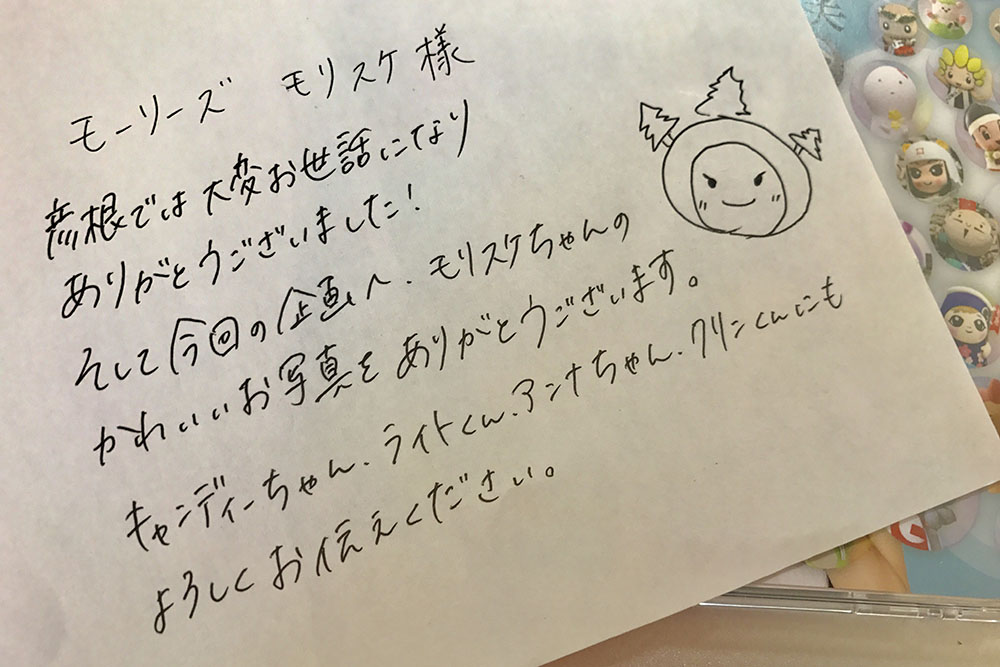 モーリーズ モリスケ様
彦根では大変お世話になり
ありがとうございました!
そして今回の企画へ、モリスケちゃんの
かわいいお写真をありがとうございます。
キャンディーちゃん、ライトくん、アンナちゃん、クリンくんにも
よろしくお伝えください。